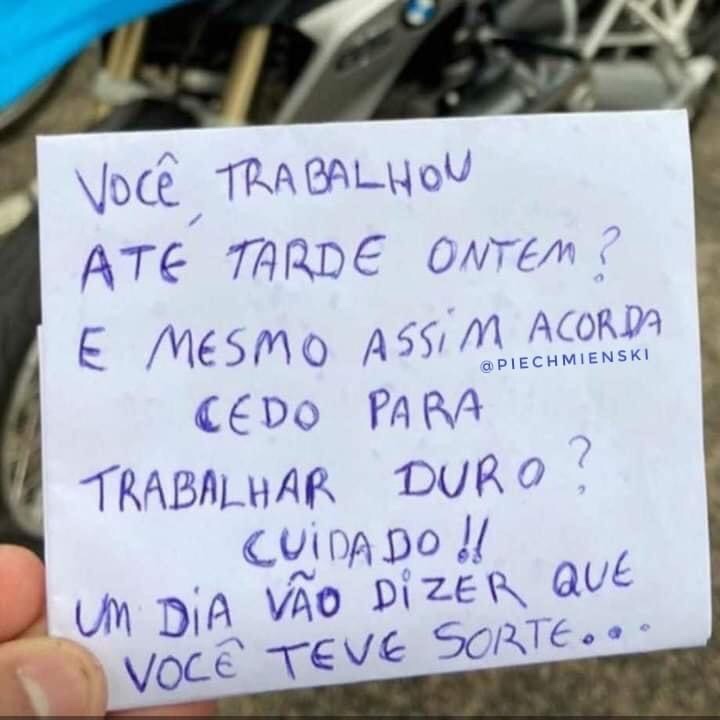 VOCÊ TRABALHOU
ATÉ TARDE ONTEM?
E MESMO ASSIM ACORDA
@PIECHMIENSKI
CEDO PARA
TRABALHAR DURO?
CUIDADO!!
UM DIA VÃO DIZER QUE
VOCÊ TEVE SORTE...